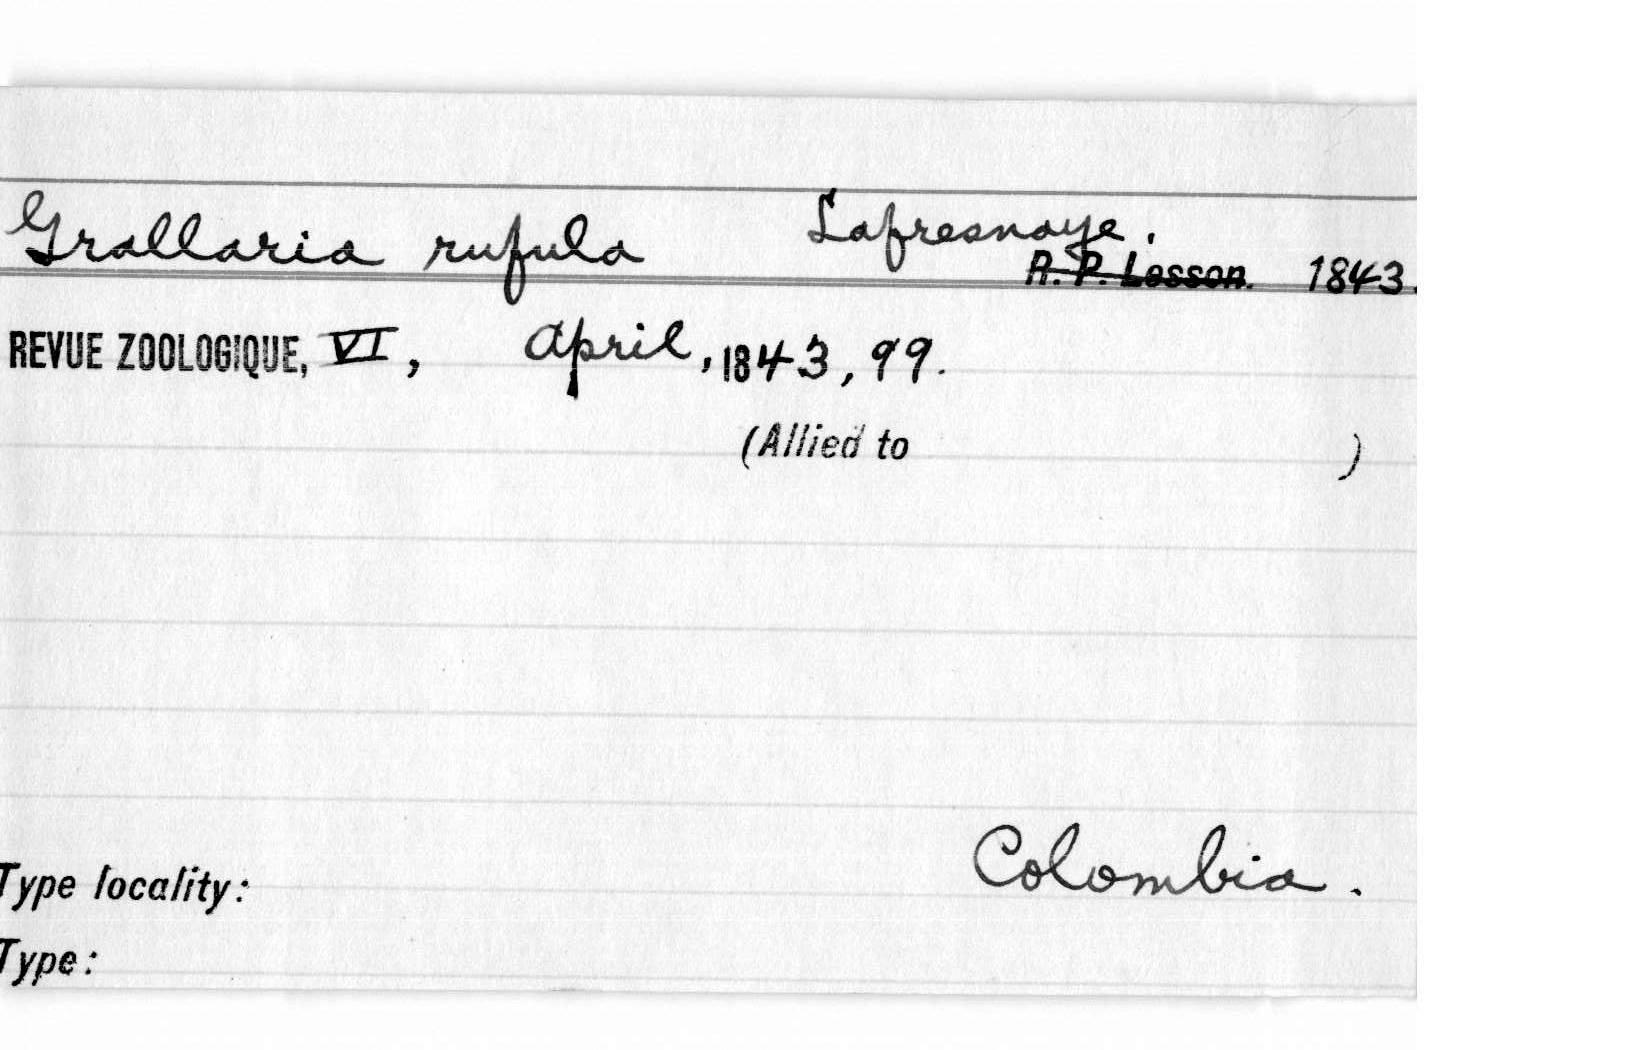 Grallaria rufula Lafresnaye.
R. P. Lesson. 1843.
REVUE ZOOLOGIQUE, VI, April, 1843, 99.
(Allied to )
Colombia.
Type locality:
Type: